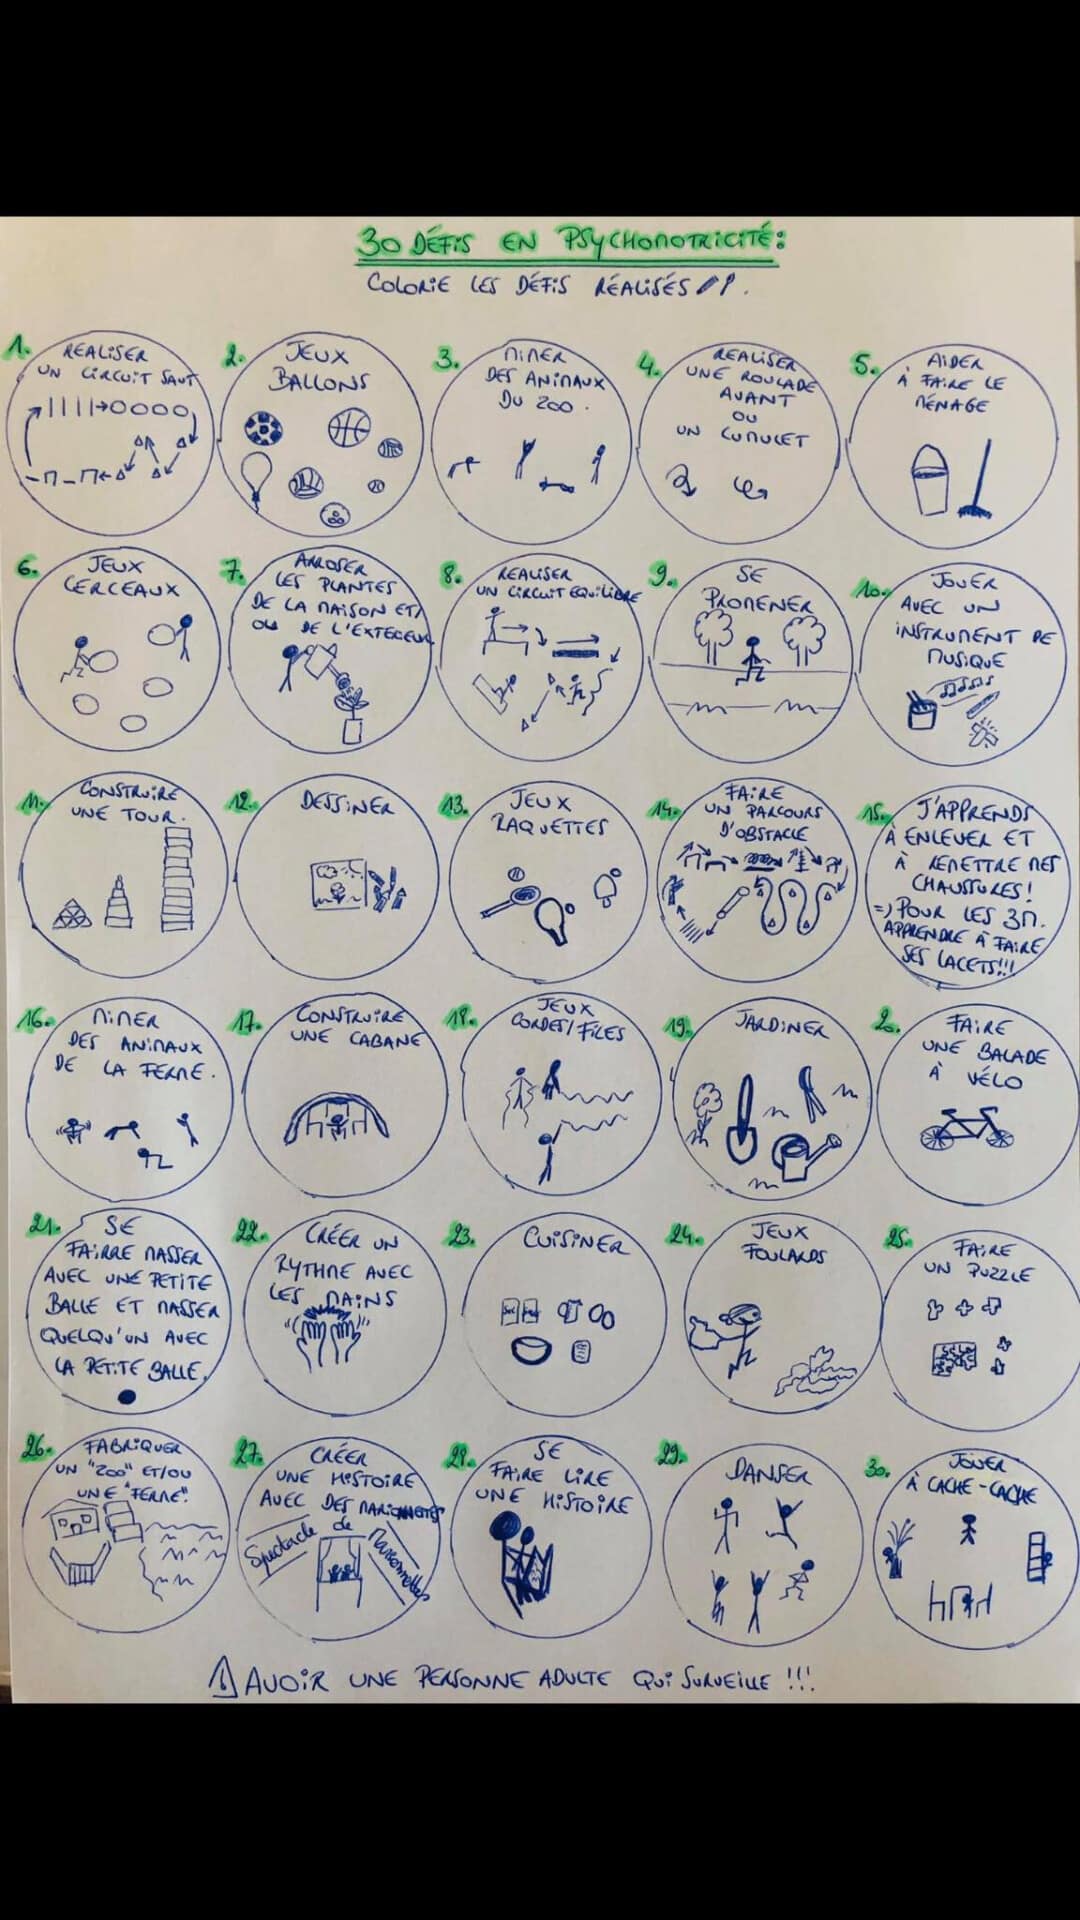 30 DÉFIS EN PSYCHOMOTRICITÉ:
COLORIE LES DÉFIS RÉALISÉS.
1. REALISER
UN CIRCUIT SAUT
2. JEUX
BALLONS
3. MIMER
DES ANIMAUX
DU ZOO.
4. REALISER
UNE ROULADE
AVANT
OU
UN CUMULET
5. AIDER
À FAIRE LE
MÉNAGE
6. JEUX
CERCEAUX
7. ARROSER
LES PLANTES
DE LA MAISON ET/
OU DE L'EXTECEUR
8. REALISER
UN CIRCUIT EQUILIBRE
9. SE
PROMENER
10. JOUER
AVEC UN
INSTRUMENT DE
MUSIQUE
11. CONSTRUIRE
UNE TOUR.
12. DESSINER
13. JEUX
RAQUETTES
14. FAIRE
UN PARCOURS
D'OBSTACLE
15. J'APPRENDS
À ENLEVER ET
À REMETTRE MES
CHAUSSURES!
=) POUR LES 3M.
APPRENDRE À FAIRE
SES LACETS!!!
16. MIMER
DES ANIMAUX
DE LA FERME.
17. CONSTRUIRE
UNE CABANE
18. JEUX
CORDES/FILES
19. JARDINER
20. FAIRE
UNE BALADE
À VÉLO
21. SE
FAIRRE MASSER
AVEC UNE PETITE
BALLE ET MASSER
QUELQU'UN AVEC
LA PETITE BALLE.
22. CRÉER UN
RYTHME AVEC
LES MAINS
23. CUISINER
24. JEUX
FOULARDS
25. FAIRE
UN PUZZLE
26. FABRIQUER
UN "ZOO" ET/OU
UNE "FERME".
27. CRÉER
UNE HISTOIRE
AVEC DES MARIONNETTES
Spectacle de Marionnettes
28. SE
FAIRE LIRE
UNE HISTOIRE
29. DANSER
30. JOUER
À CACHE-CACHE
AVOIR UNE PERSONNE ADULTE QUI SURVEILLE !!!